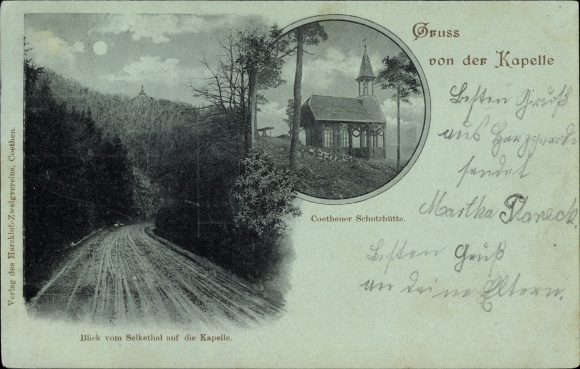 Gruss
von der Kapelle
Besten Gruß
aus Harzgerode
sendet
Martha Planeck.
Besten Gruß
an deine Eltern.
Coethener Schutzhütte.
Blick vom Selkethal auf die Kapelle.
Verlag des Harzklub-Zweigvereins, Coethen.